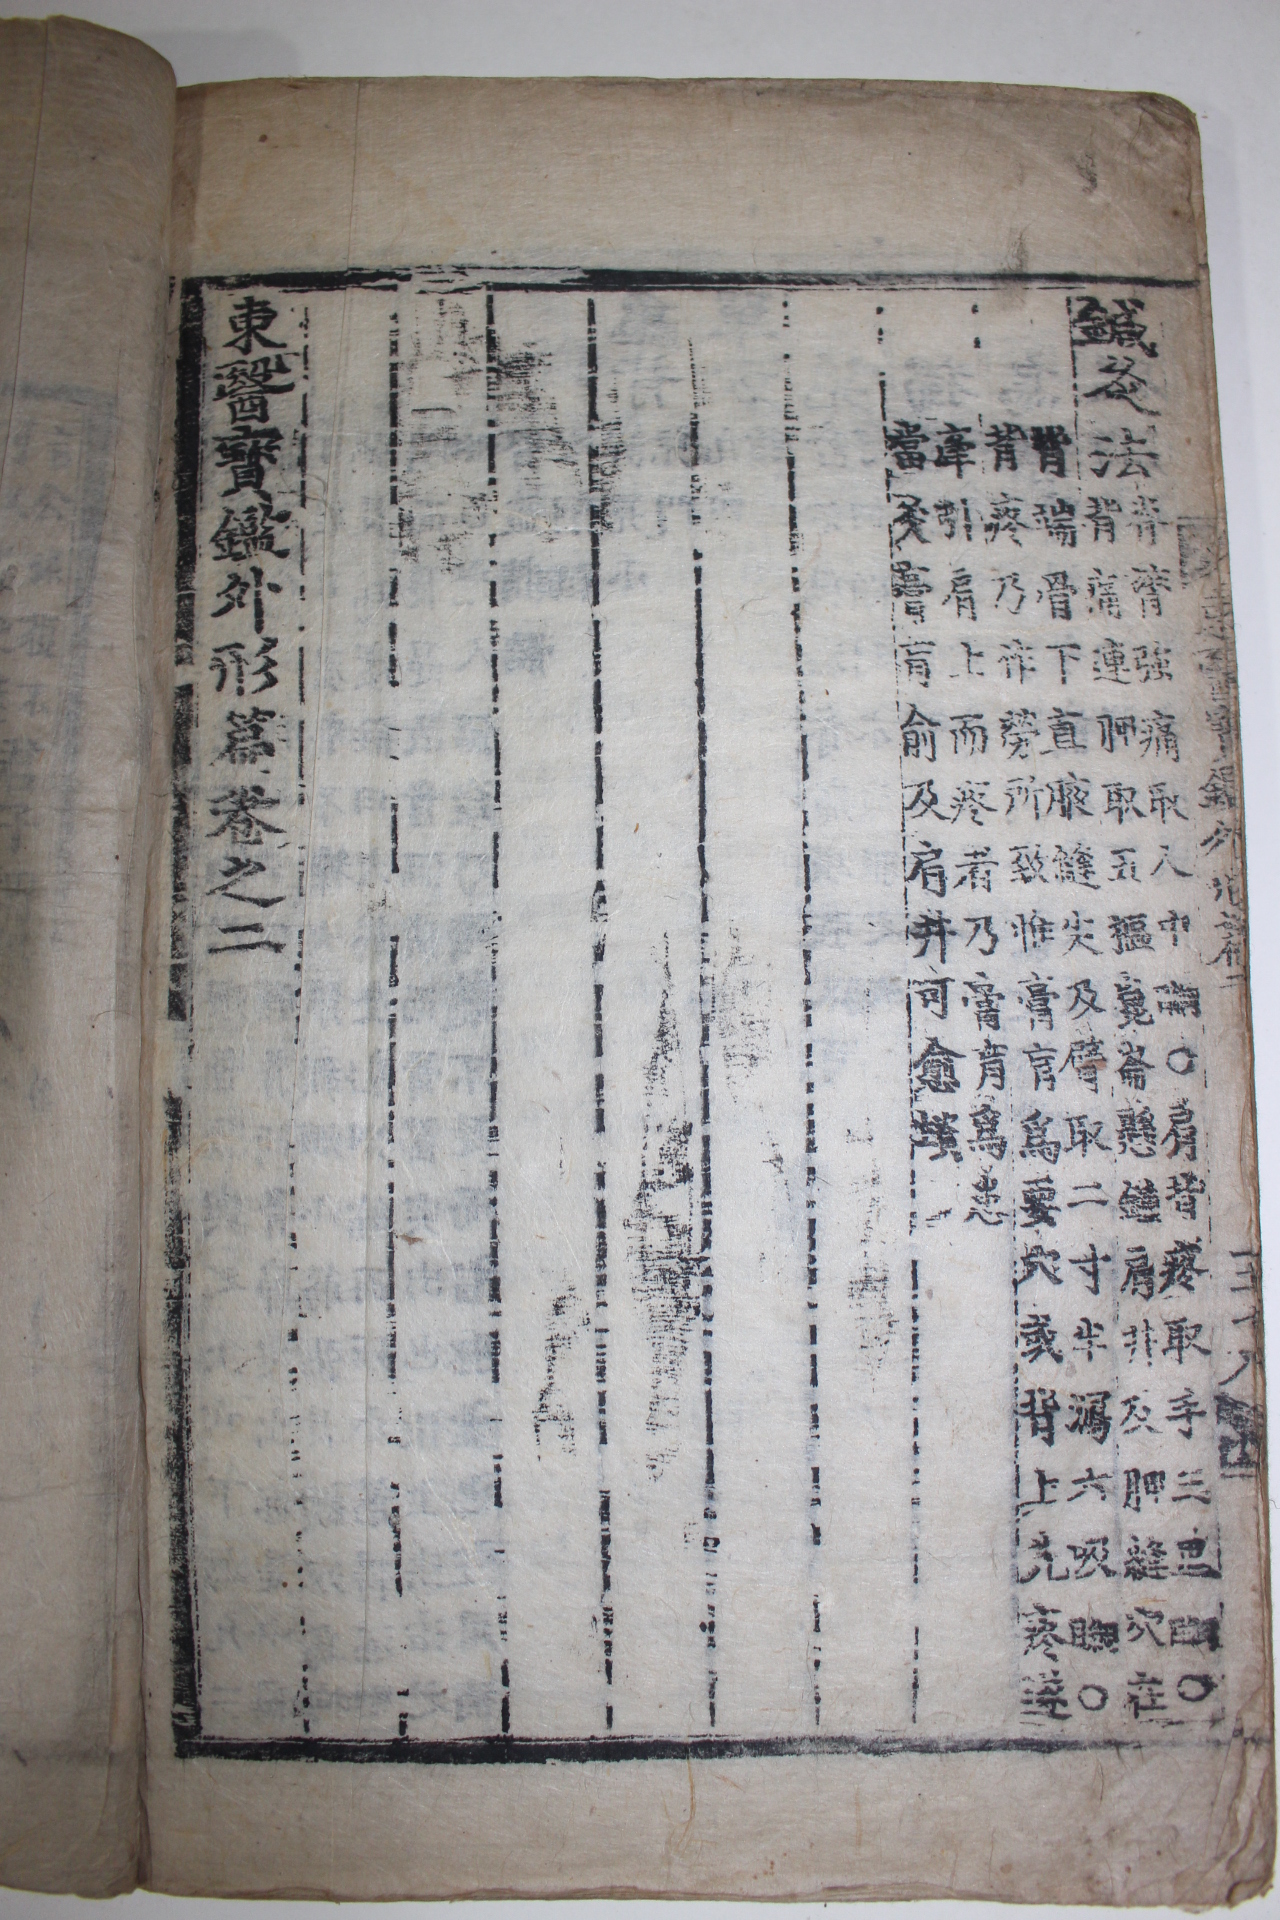 鍼灸法
脊膂強痛取人中○肩背疼取手三里○
背痛連胛取五樞崑崙懸鍾肩井及胛縫穴在
背端骨下直腋縫尖及臂取二寸半瀉六吸○
背疼乃作勞所致惟膏肓爲要穴或背上先疼遂
牽引肩上而疼者乃膏肓爲患
當灸膏肓俞及肩井可愈
東醫寶鑑外形篇卷之二